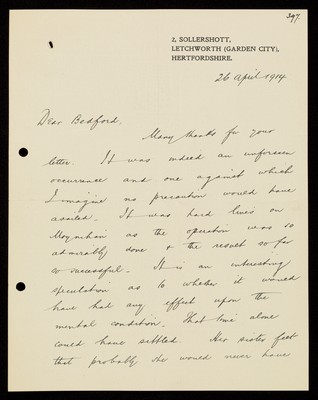 397
2, SOLLERSHOTT,
LETCHWORTH (GARDEN CITY),
HERTFORDSHIRE.
26 April 1914
Dear Bedford,
Many thanks for your
letter. It was indeed an unforseen
occurrence and one against which
I imagine no precaution would have
availed. It was hard lines on
Moynihan as the operation was so
admirably done & the result so far
so successful. It is an interesting
speculation as to whether it would
have had any effect upon the
mental condition. That time alone
could have settled. Her sister felt
that probably she would never have